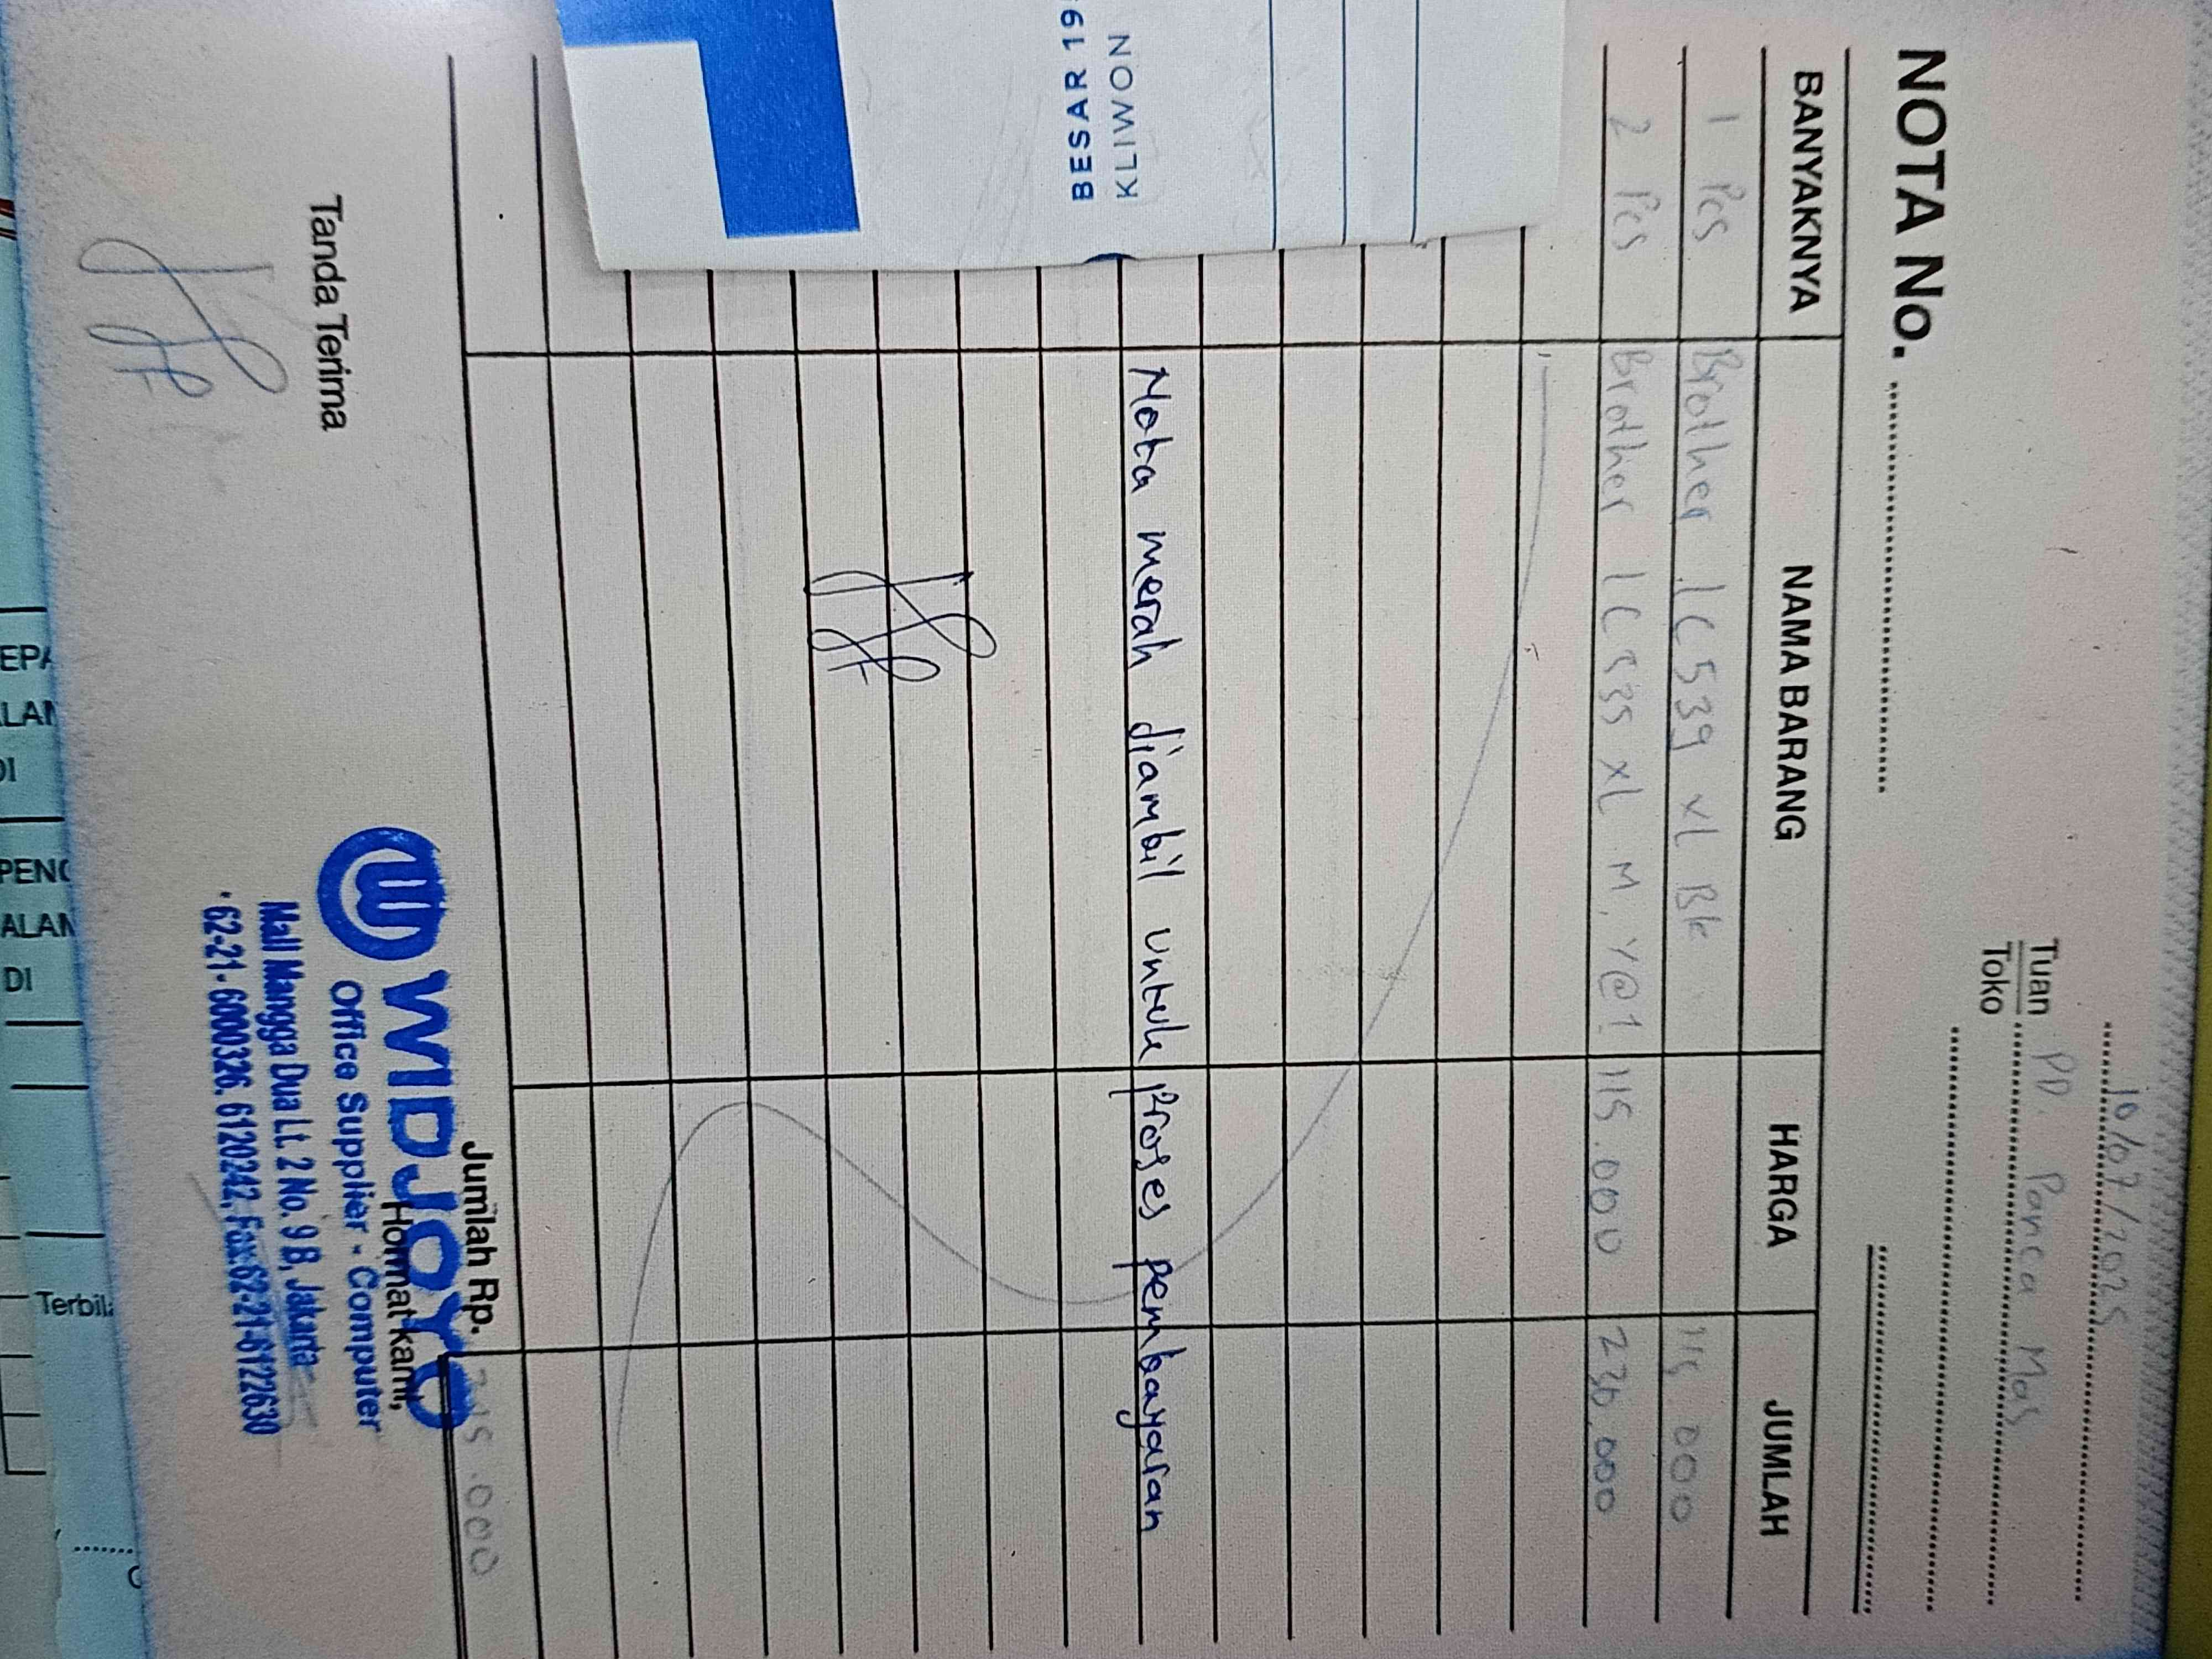 10/07/2025
Tuan PD. Panca Mas
Toko
NOTA No.
BANYAKNYA NAMA BARANG HARGA JUMLAH
1 Pcs Brother LC 539 XL Bk 115.000
2 Pcs Brother LC 535 XL M, Y@1 115.000 230.000
KLIWON
BESAR 19
Nota merah diambil untuk proses pembayaran
Jumlah Rp. 345.000
Tanda Terima Hormat kami,
WIDJOYO
Office Supplier - Computer
Mall Mangga Dua Lt. 2 No. 9 B, Jakarta
62-21-6000326, 6120242, Fax:62-21-6122630
EPA
LAN
DI
PENG
ALAN
DI
Terbila